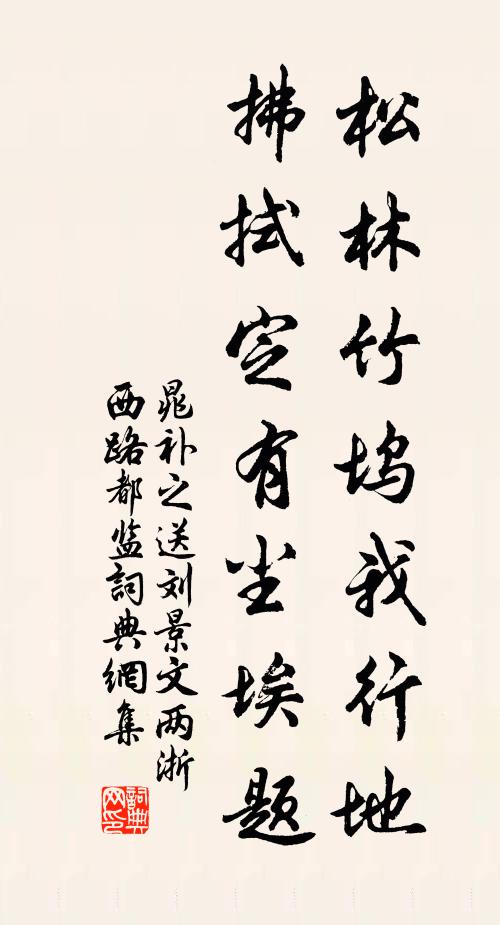 松林竹坞我行地
拂拭定有尘埃题
晁补之送刘景文两浙
西路都监詞典網集
詞典网印